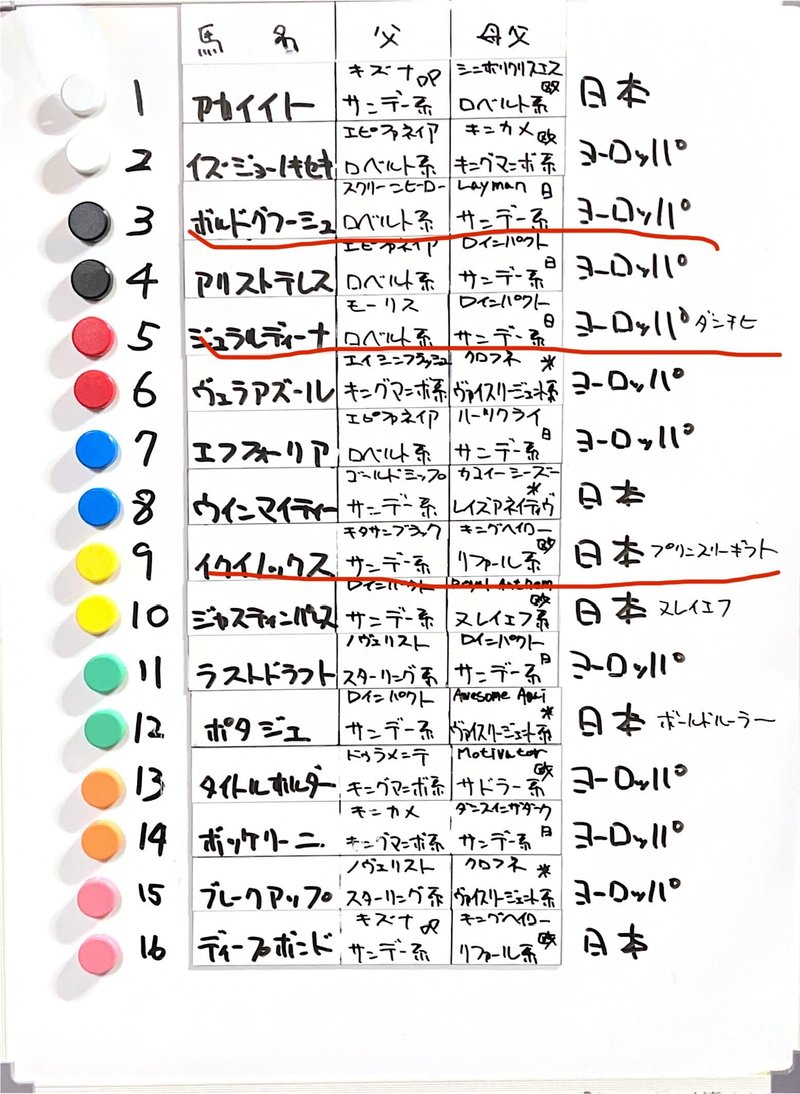 馬名 父 母父
キズナ シンボリクリスエス
1 アカイイト サンデー系 ロベルト系 欧 日本
エピファネイア キンカメ 欧
2 イズジョーノキセキ ロベルト系 キングマンボ系 ヨーロッパ
スクリーンヒーロー Layman 日
3 ボルドグフーシュ ロベルト系 サンデー系 ヨーロッパ
エピファネイア ディンパクト
4 アリストテレス ロベルト系 サンデー系 日 ヨーロッパ
モーリス ディンパクト
5 ジェラルディーナ ロベルト系 サンデー系 日 ヨーロッパ ダンチヒ
エイシンフラッシュ クロフネ 米
6 ヴェラアズール キングマンボ系 ヴァイスリージェント系 ヨーロッパ
エピファネイア ハーツクライ
7 エフフォーリア ロベルト系 サンデー系 日 ヨーロッパ
ゴールドシップ カコイーシーズー
8 ウインマイティー サンデー系 レイズアネイティヴ 米 日本
キタサンブラック キングヘイロー
9 イクイノックス サンデー系 リファール系 欧 日本 プリンスリーギフト
ディンパクト Royal Anthem
10 ジャスティンパレス サンデー系 ヌレイエフ系 欧 日本 ヌレイエフ
ノヴェリスト ディンパクト
11 ラストドラフト スターリング系 サンデー系 日 ヨーロッパ
ディンパクト Awesome
12 ポタジェ サンデー系 ヴァイスリージェント系 米 日本 ボールドルーラー
ドゥラメンテ Motivator
13 タイトルホルダー キングマンボ系 サドラー系 欧 ヨーロッパ
キンカメ ダンスインザダーク
14 ボッケリーニ キングマンボ系 サンデー系 日 ヨーロッパ
ノヴェリスト クロフネ 米
15 ブレークアップ スターリング系 ヴァイスリージェント系 ヨーロッパ
キズナ キングヘイロー
16 ディープボンド サンデー系 リファール系 欧 日本